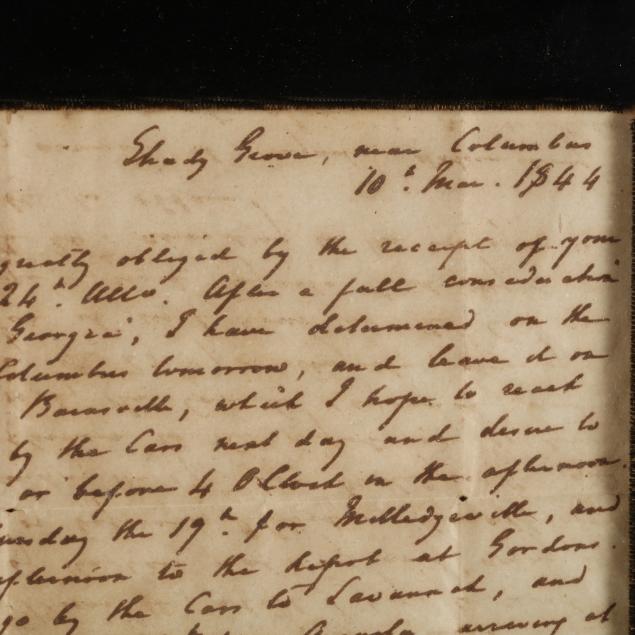 Shady Grove, near Columbus
10th Mar. 1844
greatly obliged by the receipt of your
24th Ulto. After a full consideration
Georgia, I have determined on the
Columbus tomorrow, and leave it on
Barnsville, which I hope to reach
by the Cars next day and desire to
or before 4 OClock in the afternoon.
the 19th for Milledgeville, and
afternoon to the depot at Gordons.
go by the Cars to Savannah, and
arriving at